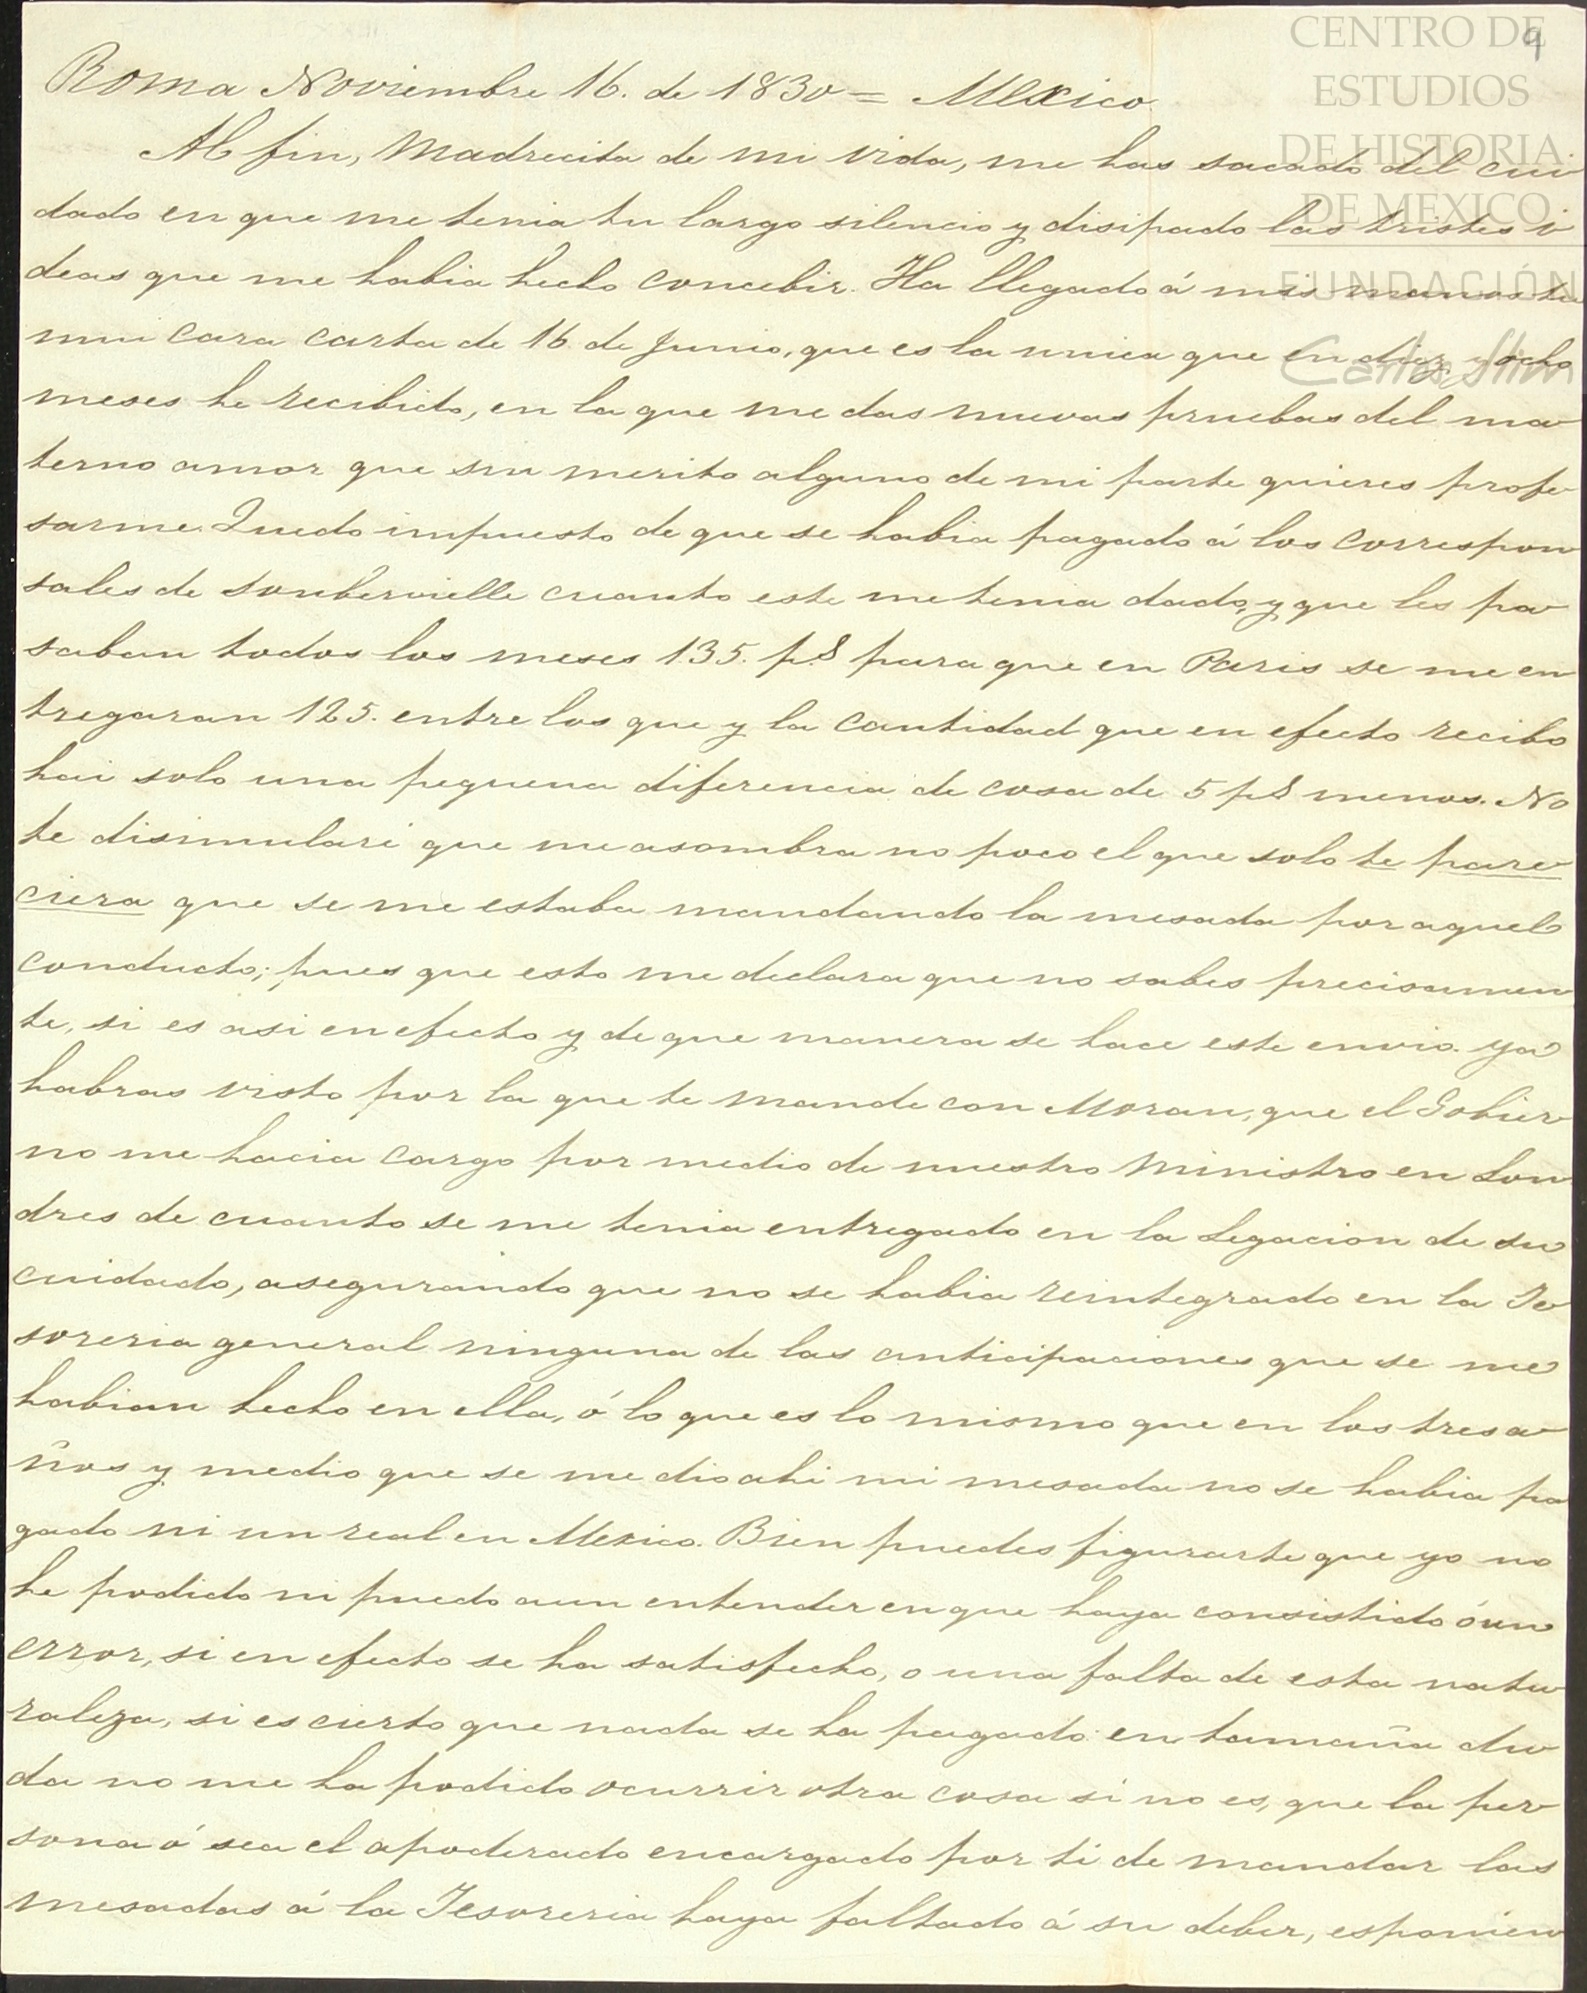 9
CENTRO DE
ESTUDIOS
DE HISTORIA
DE MEXICO
FUNDACIÓN
Carlos Slim
Roma Noviembre 16. de 1830 = Mexico.
Al fin, Madrecita de mi vida, me has sacado del cui
dado en que me tenia tu largo silencio y disipado las tristes i
deas que me habia hecho concebir. Ha llegado á mis manos tu
mui cara carta de 16 de Junio, que es la unica que en diez y ocho
meses he recibido, en la que me das nuevas pruebas del ma
terno amor que sin merito alguno de mi parte quieres profe
sarme. Quedo impuesto de que se habia pagado á los correspon
sales de Soubervielle cuanto este me tenia dado, y que les pa
saban todos los meses 135. p.s para que en Paris se me en
tregaran 125. entre los que y la cantidad que en efecto recibo
hai solo una pequena diferencia de cosa de 5 p.s menos. No
te disimularé que me asombra no poco el que solo te pare
ciera que se me estaba mandando la mesada por aquel
conducto; pues que esto me declara que no sabes precisamen
te, si es asi en efecto y de que manera se hace este envio. Ya
habras visto por la que te mande con Moran, que el Gobier
no me hacia cargo por medio de nuestro Ministro en Lon
dres de cuanto se me tenia entregado en la Legacion de su
cuidado, asegurando que no se habia reintegrado en la Te
soreria general ninguna de las anticipaciones que se me
habian hecho en ella, ó lo que es lo mismo que en los tres a
ños y medio que se me dio ahi mi mesada no se habia pa
gado ni un real en Mexico. Bien puedes figurarte que yo no
he podido ni puedo aun entender en que haya consistido ó un
error, si en efecto se ha satisfecho, o una falta de esta natu
raleza, si es cierto que nada se ha pagado: en tamaña du
da no me ha podido ocurrir otra cosa si no es, que la per
sona ó sea el apoderado encargado por ti de mandar las
mesadas á la Tesoreria haya faltado á su deber, esponien